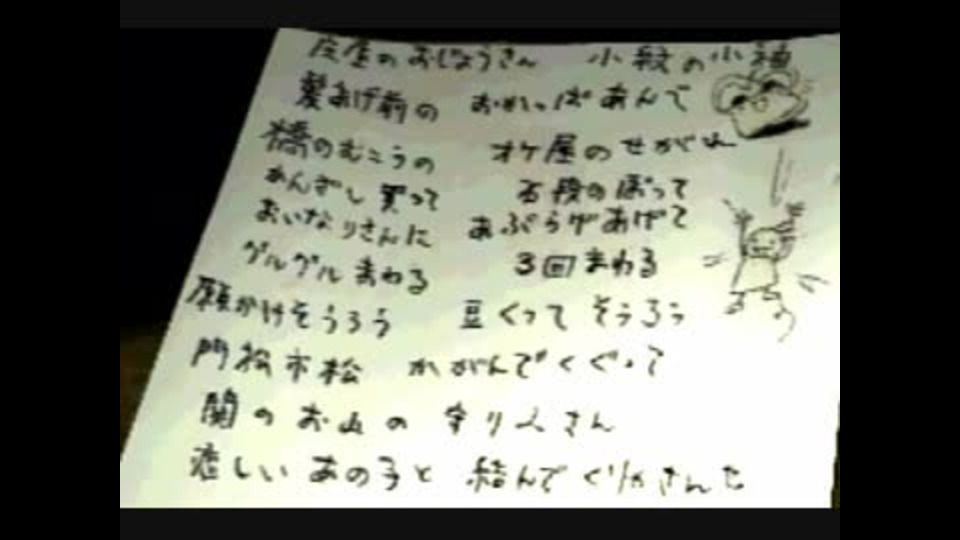 屋のおじょうさん 小紋の小袖
髪あげ前の おかっぱあんで
橋のむこうの オケ屋のせがれ
かんざし買って 石段のぼって
おいなりさんに あぶらげあげて
グルグルまわる 3回まわる
願かけそうろう 豆くってそうろう
門松市松 かがんでくぐって
関のお山の 守り人さん
恋しいあの子と 結んでくりゃさんせ